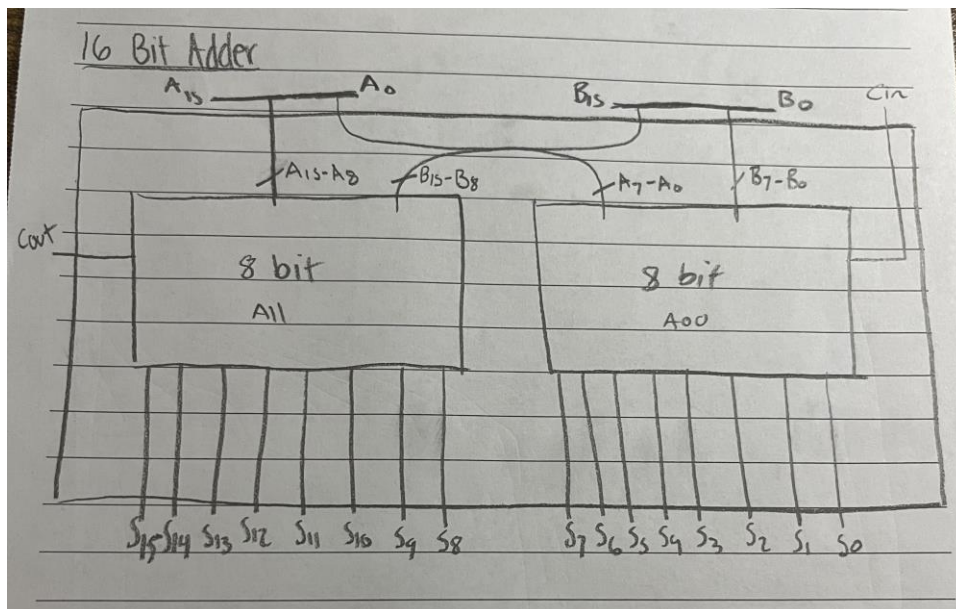 16 Bit Adder
A15 A0 B15 B0 Cin
A15-A8 B15-B8 A7-A0 B7-B0
Cout
8 bit 8 bit
A11 A00
S15 S14 S13 S12 S11 S10 S9 S8 S7 S6 S5 S4 S3 S2 S1 S0